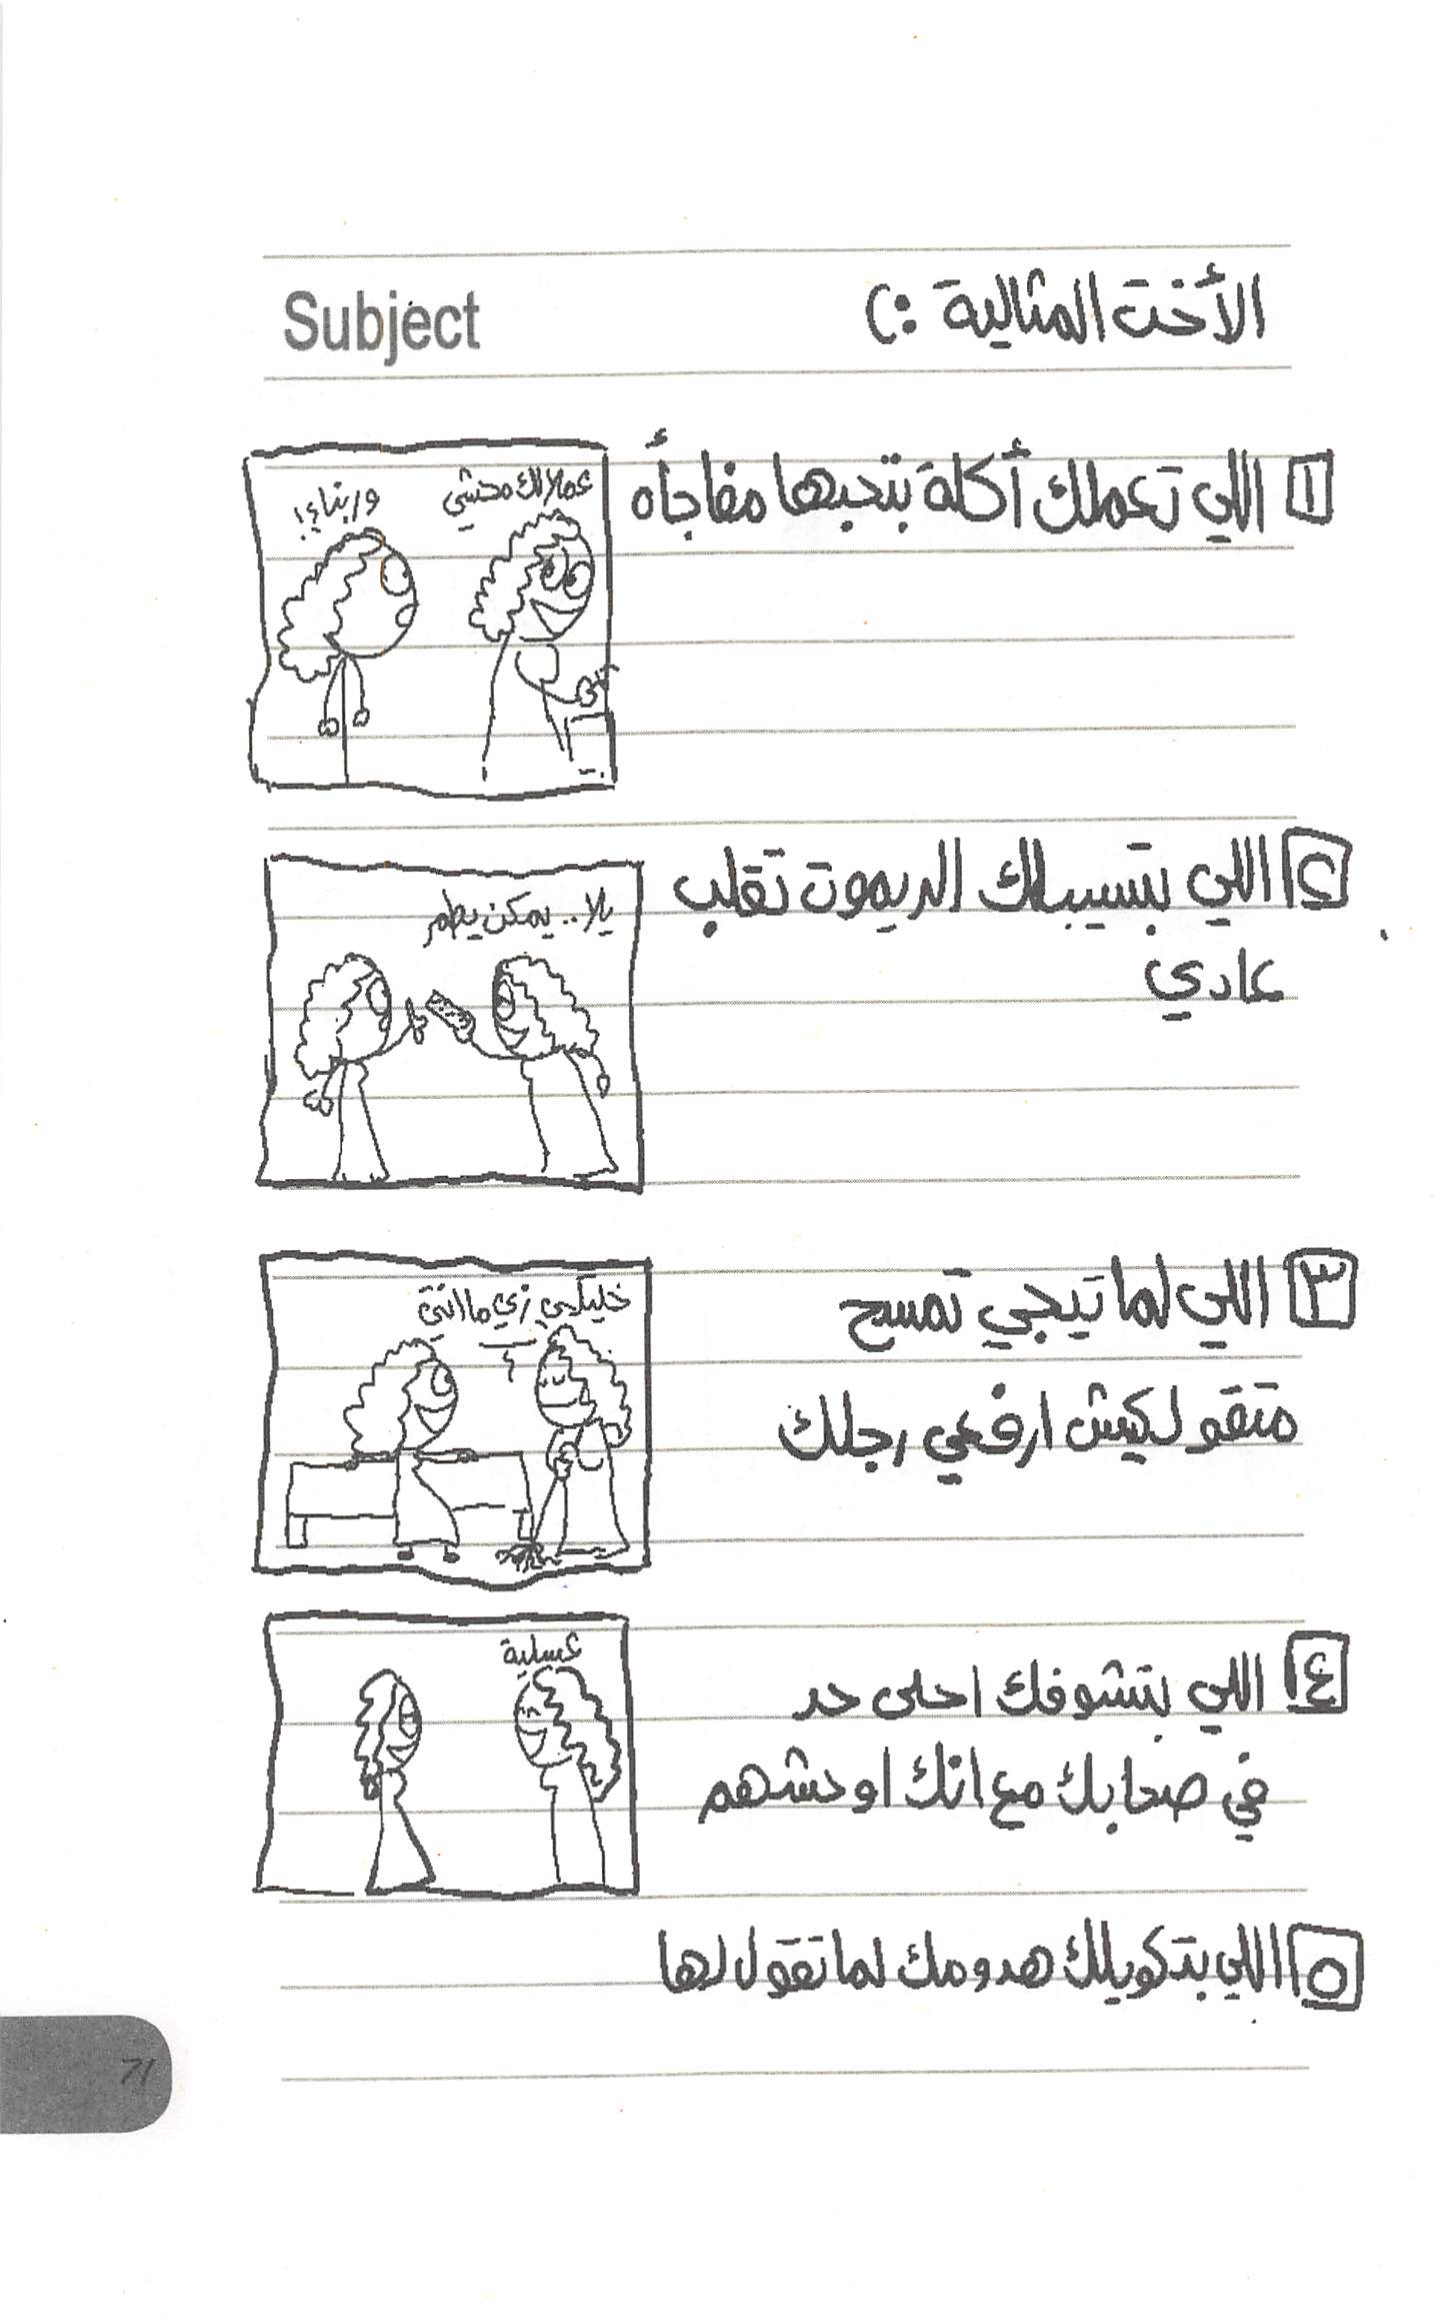 الأخت المثالية :)
Subject
١ اللي تعملك أكلة بتحبها مفاجأه
عملالك محشي
وربناي!
٢ اللي بتسيبلك الريموت تقلب
عادي
يلا.. يمكن يطمر
٣ اللي لما تيجي تمسح
متقولكيش ارفعي رجلك
خليكي زي ما انتي
٤ اللي بتشوفك احلى حد
في صحابك مع انك اوحشهم
عسلية
٥ اللي بتكويلك هدومك لما تقول لها
71